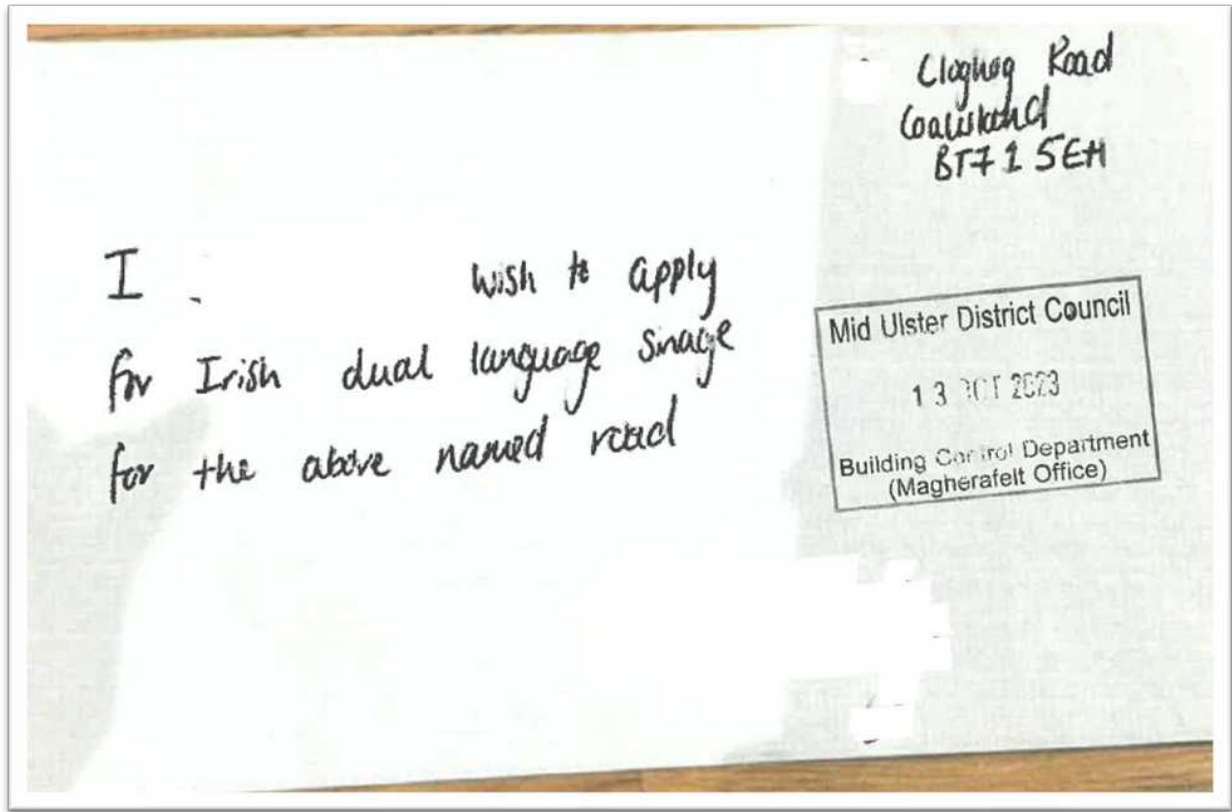 Cloghog Road
Coalisland
BT71 5EH
I wish to apply
for Irish dual language sinage
for the above named road
Mid Ulster District Council
13 OCT 2023
Building Control Department
(Magherafelt Office)